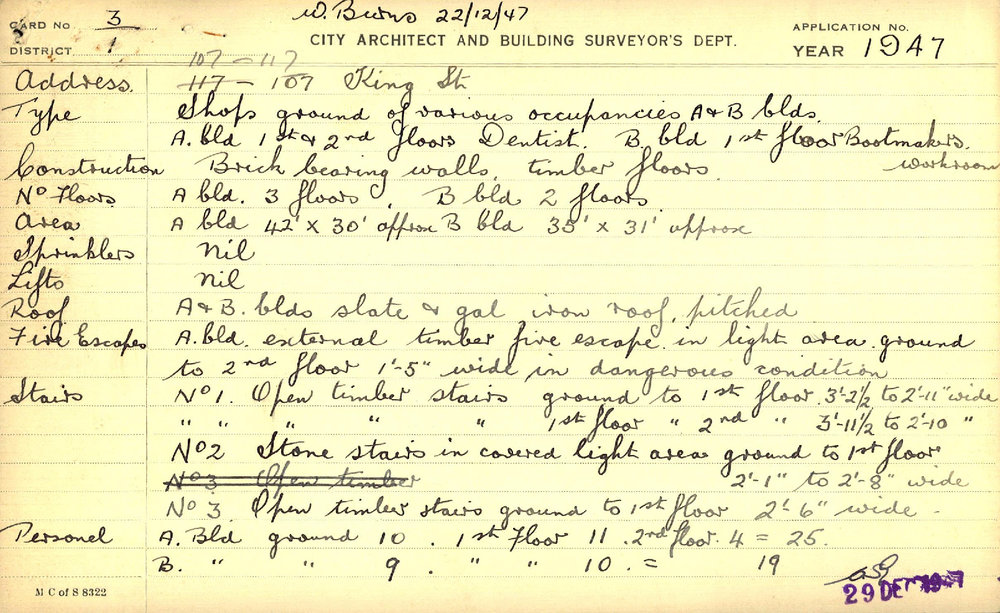 CARD NO. 3
W. Burns 22/12/47
APPLICATION NO.
DISTRICT 1
CITY ARCHITECT AND BUILDING SURVEYOR'S DEPT.
YEAR 1947
107 - 117
Address. 117 - 107 King St
Type Shops ground of various occupancies A & B blds.
A. bld 1st & 2nd floors Dentist. B. bld 1st floor Bootmakers.
workroom
Construction Brick bearing walls, timber floors.
No Floors A bld. 3 floors, B bld 2 floors.
Area A bld 42' x 30' approx B bld 35' x 31' approx
Sprinklers nil
Lifts nil
Roof A & B. blds slate & gal iron roof, pitched
Fire Escapes A. bld. external timber fire escape. in light area. ground
to 2nd floor 1'-5" wide in dangerous condition
Stairs No 1. Open timber stairs ground to 1st floor. 3'-2½ to 2'-11" wide
" " " " " 1st floor " 2nd " 3'-11½ to 2'-10 "
No 2 Stone stairs in covered light area ground to 1st floor
No 3 Open timber 2'-1" to 2'-8" wide
No 3. Open timber stairs ground to 1st floor 2'-6" wide -
Personel A. Bld ground 10. 1st Floor 11. 2nd floor. 4 = 25.
B. " " 9. " " 10. = 19
M C of S 8322
29 DEC 1947